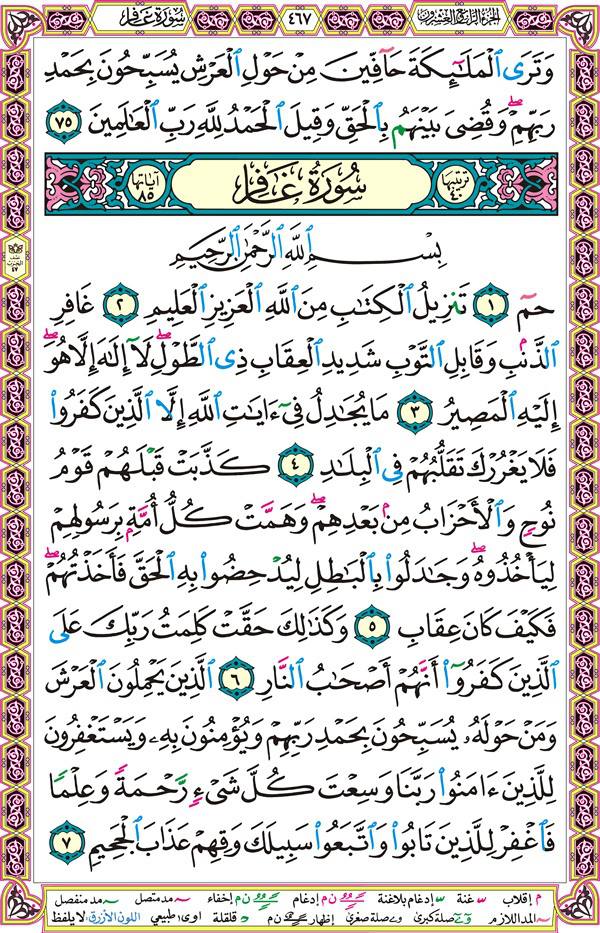 الجزء الرابع والعشرون ٤٦٧ سورة غافر
وَتَرَى ٱلْمَلَٰٓئِكَةَ حَآفِّينَ مِنْ حَوْلِ ٱلْعَرْشِ يُسَبِّحُونَ بِحَمْدِ
رَبِّهِمْ ۖ وَقُضِىَ بَيْنَهُم بِٱلْحَقِّ وَقِيلَ ٱلْحَمْدُ لِلَّهِ رَبِّ ٱلْعَٰلَمِينَ ٧٥
ترتيبها ٤٠ سُورَةُ غَافِرٍ آياتها ٨٥
بِسْمِ ٱللَّهِ ٱلرَّحْمَٰنِ ٱلرَّحِيمِ
حمٓ ١ تَنزِيلُ ٱلْكِتَٰبِ مِنَ ٱللَّهِ ٱلْعَزِيزِ ٱلْعَلِيمِ ٢ غَافِرِ
ٱلذَّنۢبِ وَقَابِلِ ٱلتَّوْبِ شَدِيدِ ٱلْعِقَابِ ذِى ٱلطَّوْلِ ۖ لَآ إِلَٰهَ إِلَّا هُوَ ۖ
إِلَيْهِ ٱلْمَصِيرُ ٣ مَا يُجَٰدِلُ فِىٓ ءَايَٰتِ ٱللَّهِ إِلَّا ٱلَّذِينَ كَفَرُوا۟
فَلَا يَغْرُرْكَ تَقَلُّبُهُمْ فِى ٱلْبِلَٰدِ ٤ كَذَّبَتْ قَبْلَهُمْ قَوْمُ
نُوحٍ وَٱلْأَحْزَابُ مِنۢ بَعْدِهِمْ ۖ وَهَمَّتْ كُلُّ أُمَّةٍۭ بِرَسُولِهِمْ
لِيَأْخُذُوهُ ۖ وَجَٰدَلُوا۟ بِٱلْبَٰطِلِ لِيُدْحِضُوا۟ بِهِ ٱلْحَقَّ فَأَخَذْتُهُمْ ۖ
فَكَيْفَ كَانَ عِقَابِ ٥ وَكَذَٰلِكَ حَقَّتْ كَلِمَتُ رَبِّكَ عَلَى
ٱلَّذِينَ كَفَرُوٓا۟ أَنَّهُمْ أَصْحَٰبُ ٱلنَّارِ ٦ ٱلَّذِينَ يَحْمِلُونَ ٱلْعَرْشَ
وَمَنْ حَوْلَهُۥ يُسَبِّحُونَ بِحَمْدِ رَبِّهِمْ وَيُؤْمِنُونَ بِهِۦ وَيَسْتَغْفِرُونَ
لِلَّذِينَ ءَامَنُوا۟ رَبَّنَا وَسِعْتَ كُلَّ شَىْءٍ رَّحْمَةً وَعِلْمًا
فَٱغْفِرْ لِلَّذِينَ تَابُوا۟ وَٱتَّبَعُوا۟ سَبِيلَكَ وَقِهِمْ عَذَابَ ٱلْجَحِيمِ ٧
نصف الحزب ٤٧
م إقلاب غنة إدغام بلاغنة ن م إدغام ن م إخفاء مد متصل مد منفصل
المد اللازم صلة كبرى صلة صغرى إظهار ن م قلقلة اوى؛ طبيعي اللون الأزرق: لا يلفظ